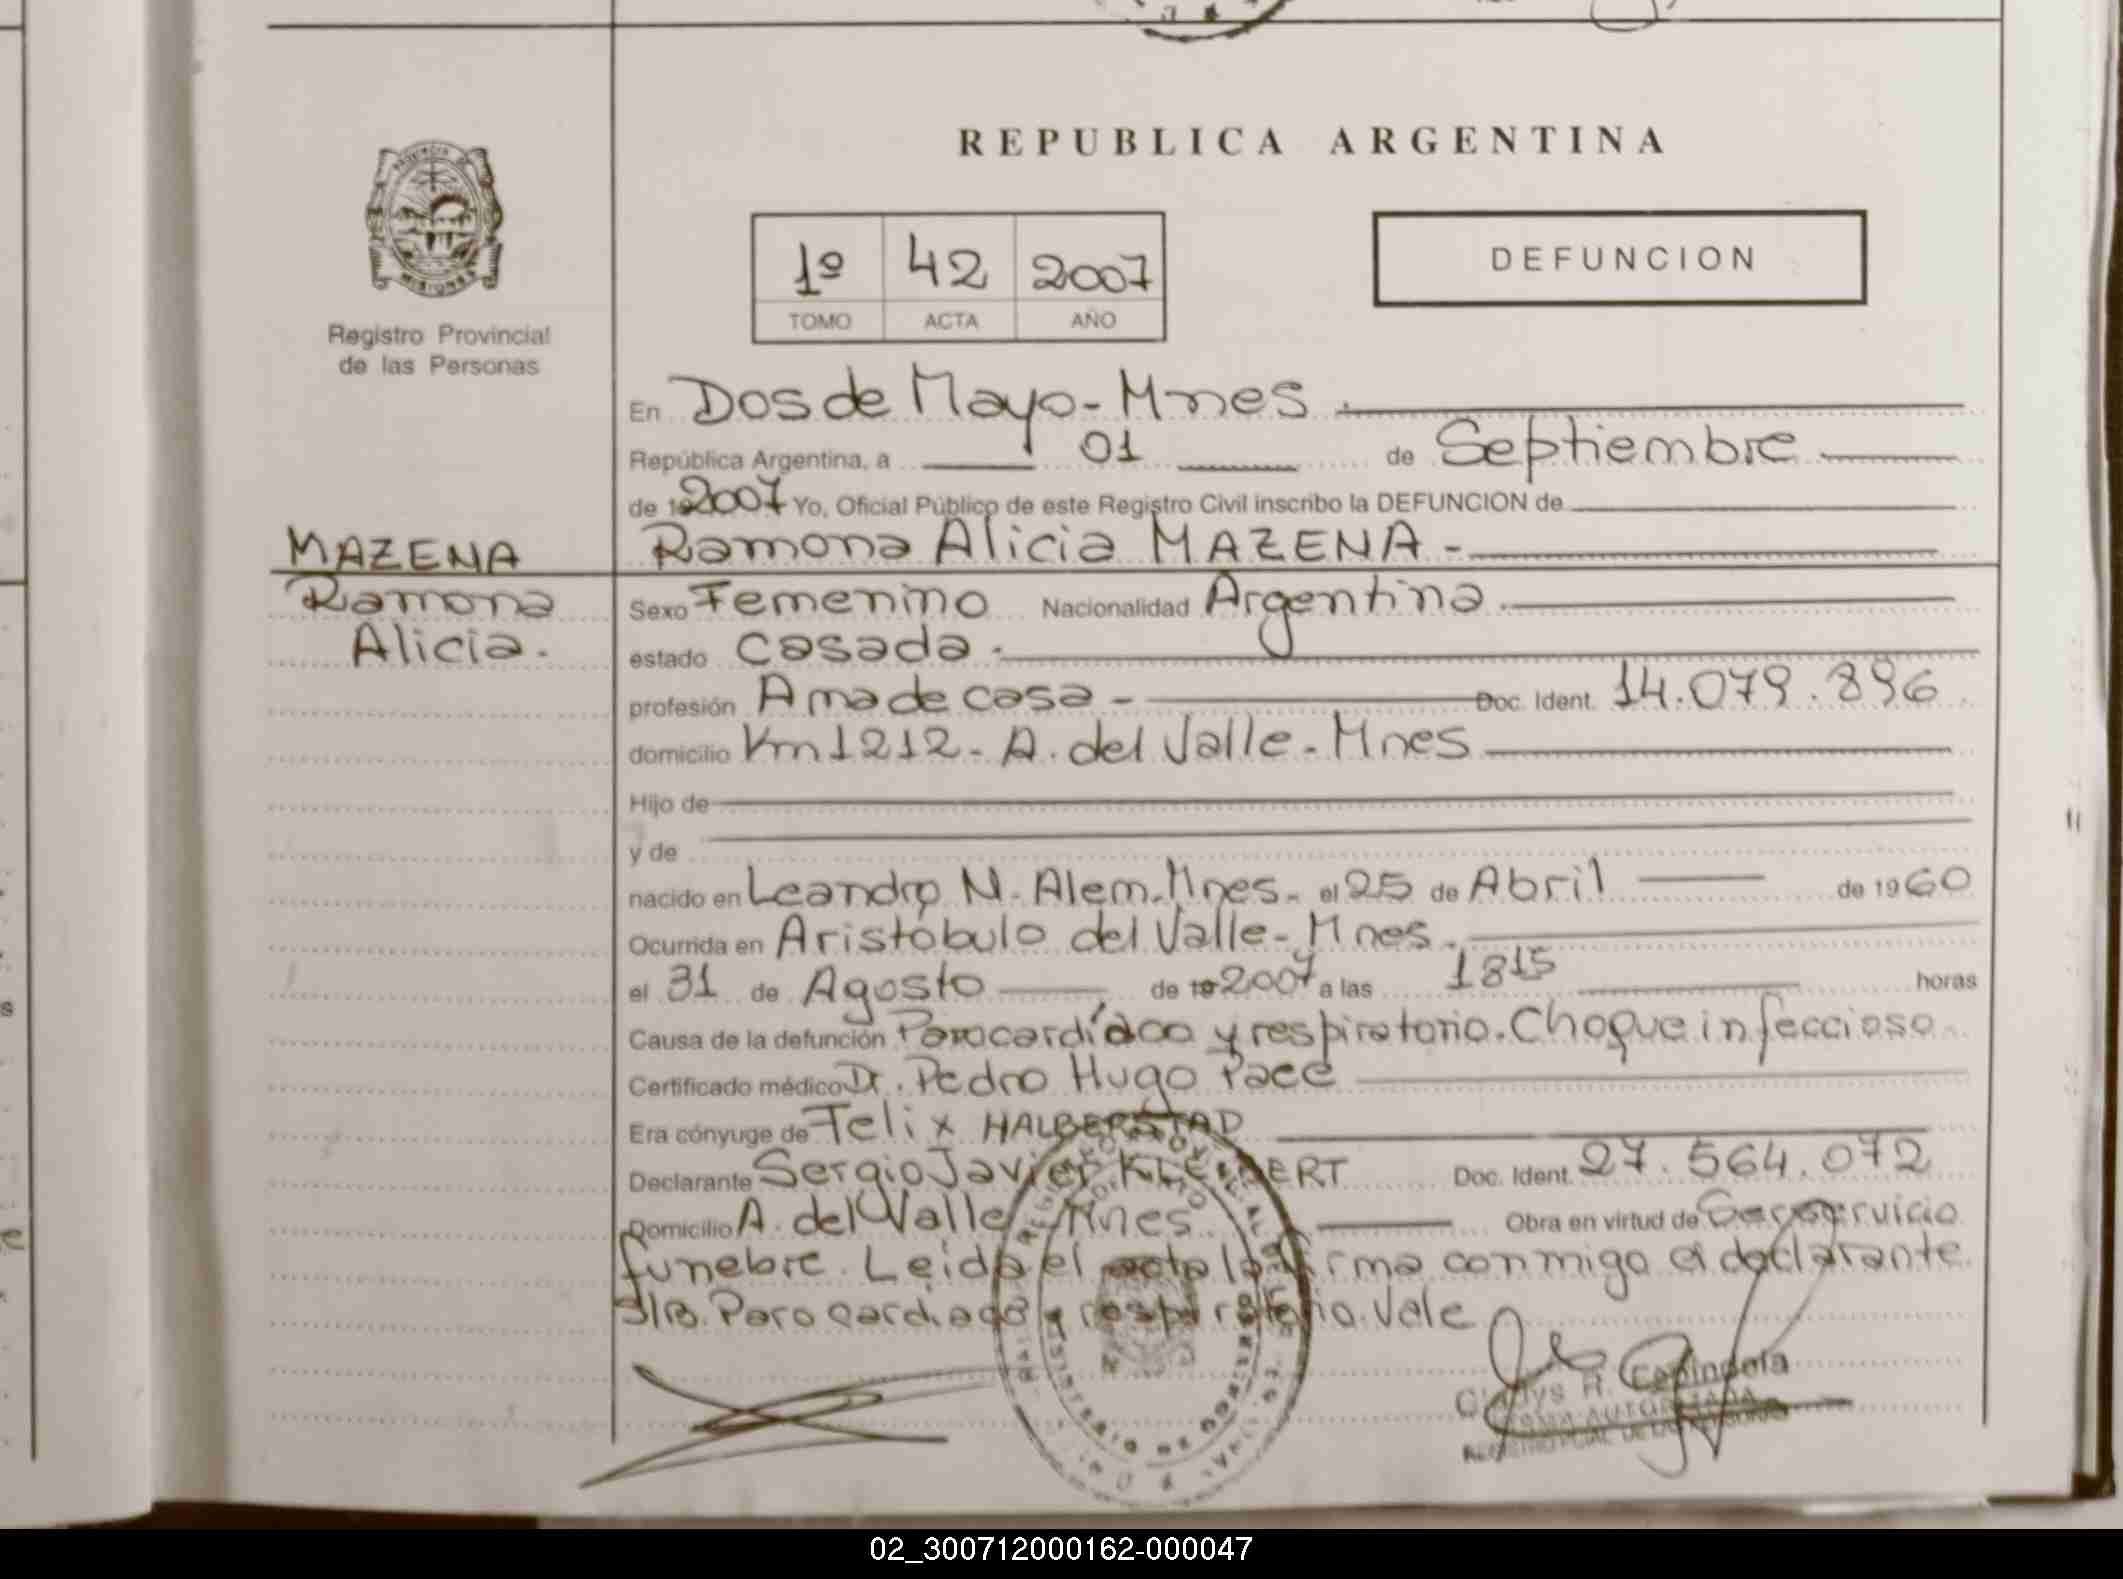 REPUBLICA ARGENTINA
1º 42 2007
TOMO ACTA AÑO
DEFUNCION
MISIONES
Registro Provincial
de las Personas
MAZENA
Ramona
Alicia.
En Dos de Mayo - Mnes.
República Argentina, a 01 de Septiembre
de 2007 Yo, Oficial Público de este Registro Civil inscribo la DEFUNCION de
Ramona Alicia MAZENA -
Sexo Femenino Nacionalidad Argentina.
estado casada.
profesión Ama de casa - Doc. Ident. 14.079.896
domicilio Km 1212 - A. del Valle - Mnes
Hijo de
y de
nacido en Leandro N. Alem. Mnes. el 25 de Abril de 1960
Ocurrida en Aristóbulo del Valle - Mnes.
el 31 de Agosto de 2007 a las 1815 horas
Causa de la defunción Paro cardíaco y respiratorio. Choque infeccioso.
Certificado médico Dr. Pedro Hugo Paee
Era cónyuge de Felix HALBERSTAD
Declarante Sergio Javier Doc. Ident. 27.564.072
Domicilio A. del Valle Mnes. Obra en virtud de Ser servicio
funebre. Leida el acta la firma conmigo el declarante.
S/B. Paro cardiaco y respiratorio. Vale
Gladys R. Espindola
FIRMA AUTORIZADA
REGISTRO PCIAL DE LAS PERSONAS
MINISTERIO DE GOBIERNO
02_300712000162-000047